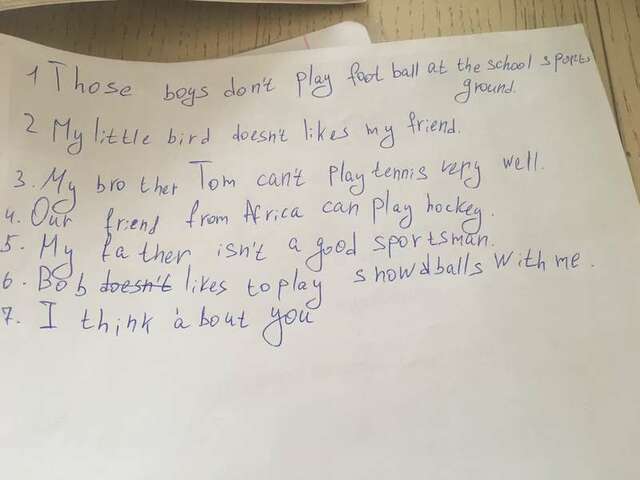 1 Those boys don't play foot ball at the school sports
ground.
2 My little bird doesn't likes my friend.
3. My brother Tom can't play tennis very well.
4. Our friend from Africa can play hockey.
5. My father isn't a good sportsman.
6. Bob doesn't likes to play showdballs with me.
7. I think about you